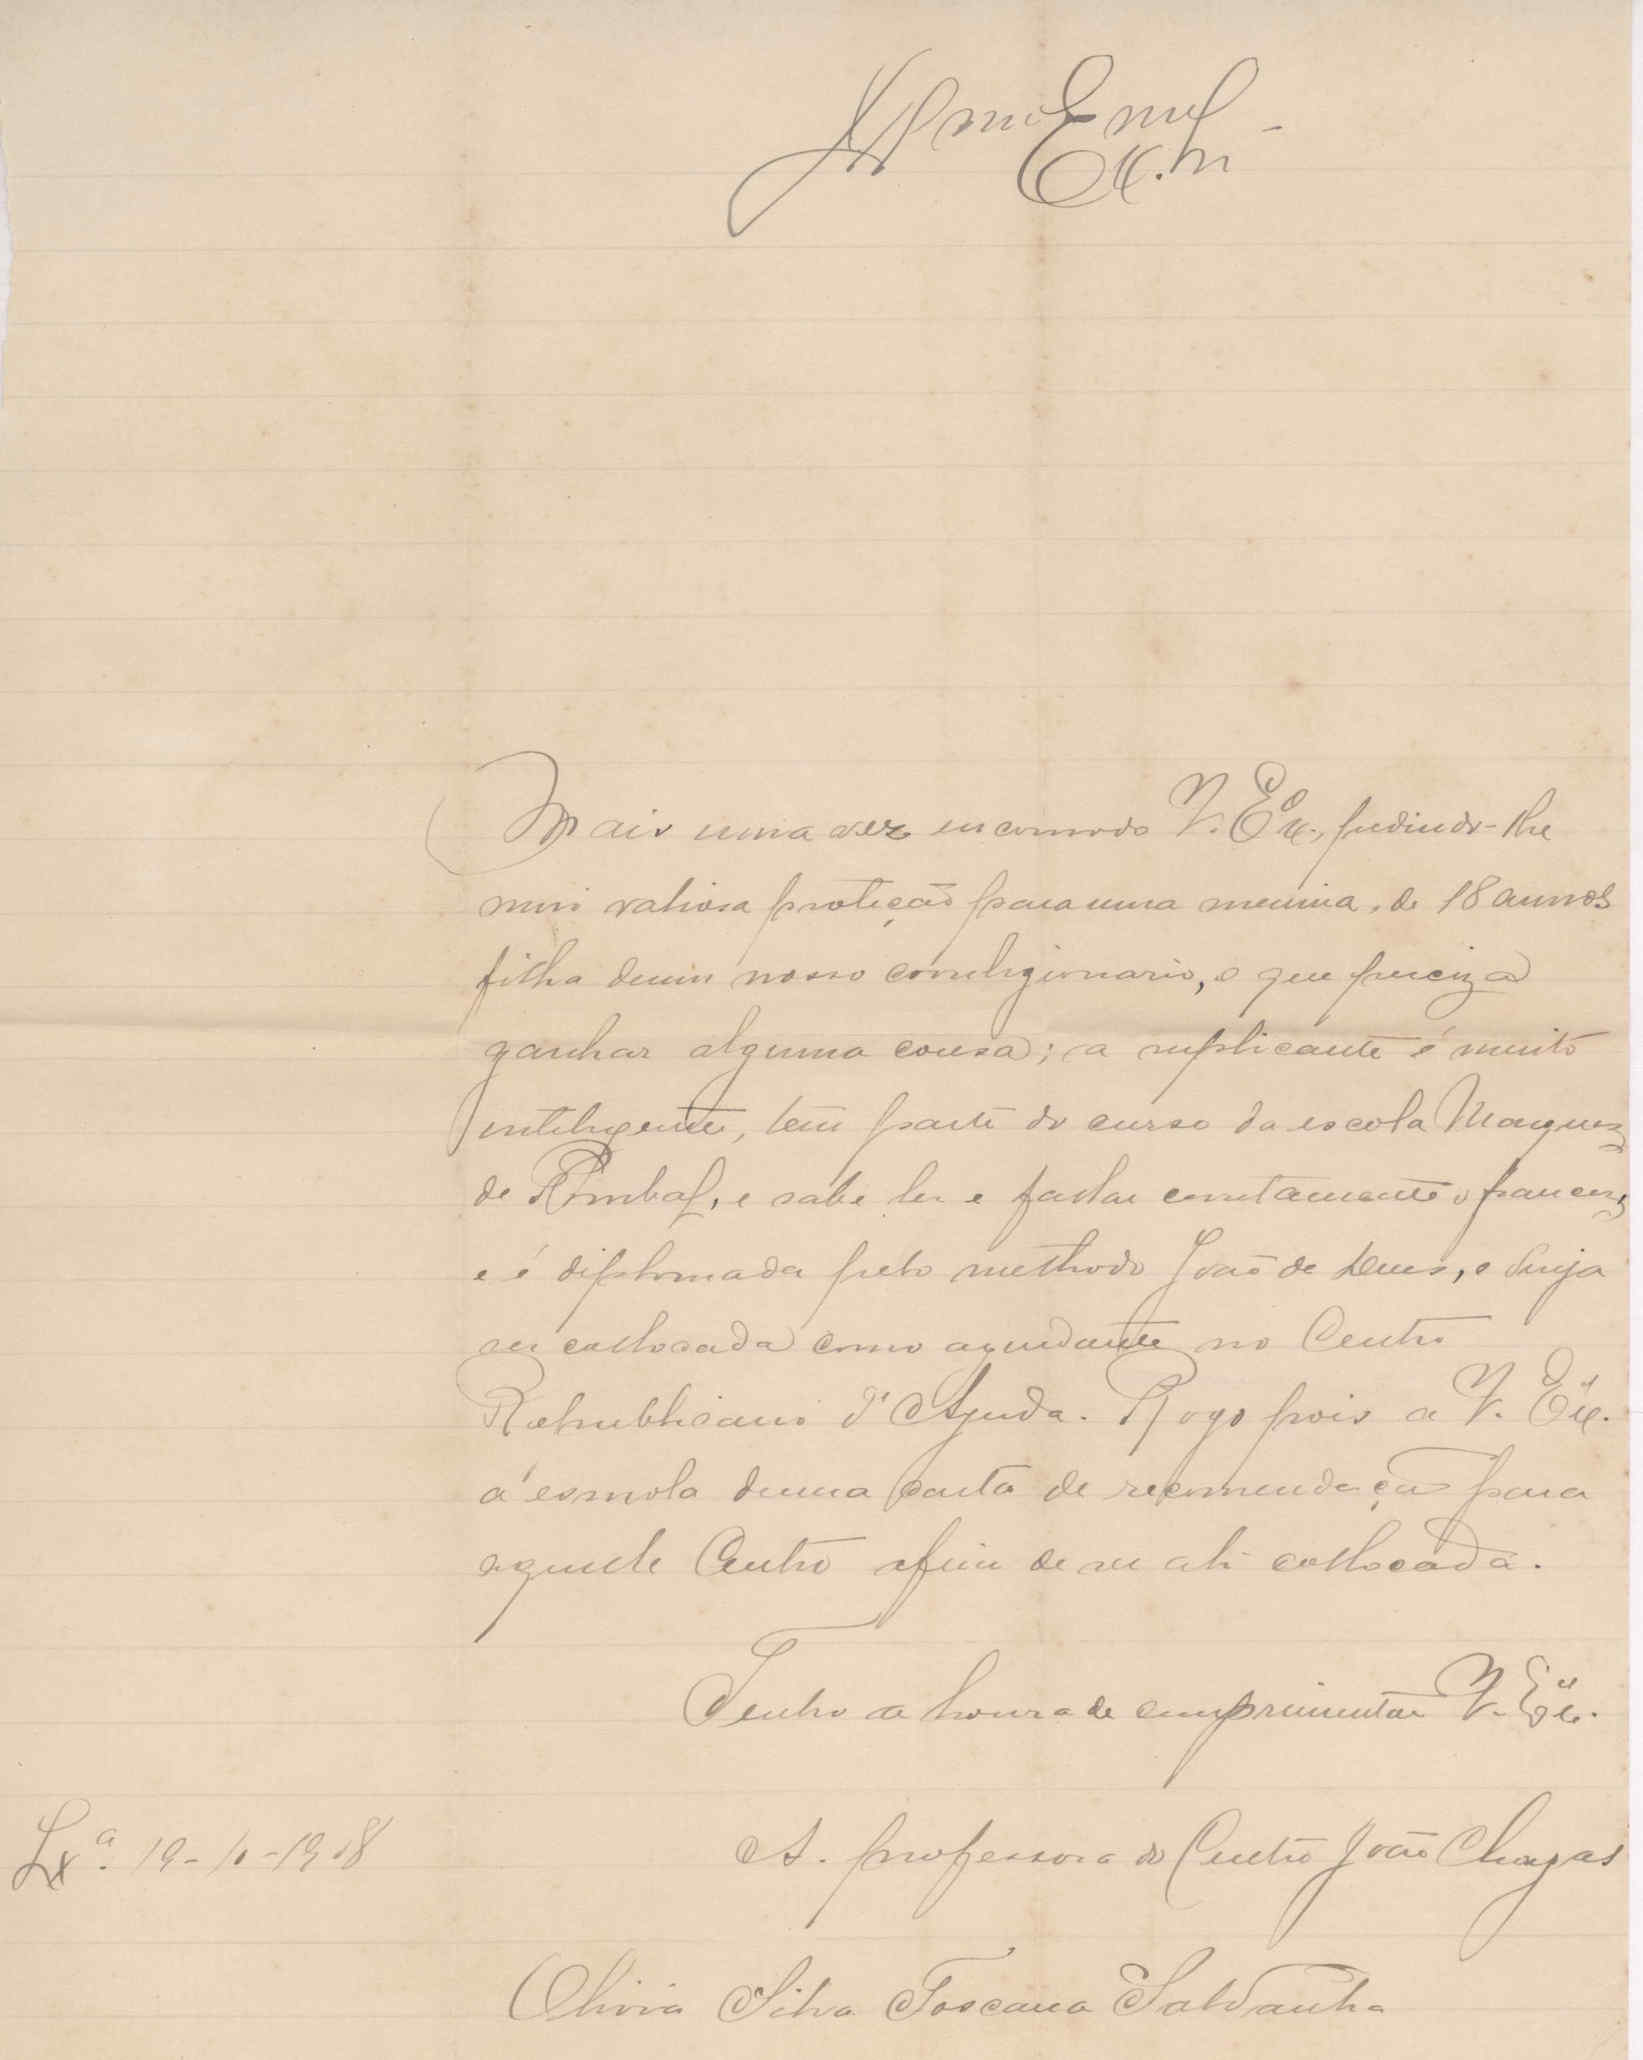 Illmo Exmo
Mais uma vez encommodo V. Exª., pedindo-lhe
mui valiosa proteção para uma menina, de 18 annos
filha dum nosso correligionario, e que preciza
ganhar alguma cousa; a suplicante é muito
inteligente, tem parte do curso da escola Marquez
de Pombal, e sabe ler e fallar corretamente o francez,
e é diplomada pelo methodo João de Deus, e deseja
ser collocada como ajudante no Centro
Republicano d'Ajuda. Rogo pois a V. Exª.
a esmola duma carta de recomendação para
aquele Centro afim de ser ali collocada.
Tenho a honra de cumprimentar V. Exª.
Lxª. 19-10-1908
A. professora do Centro João Chagas
Olivia Silva Toscana Saldanha